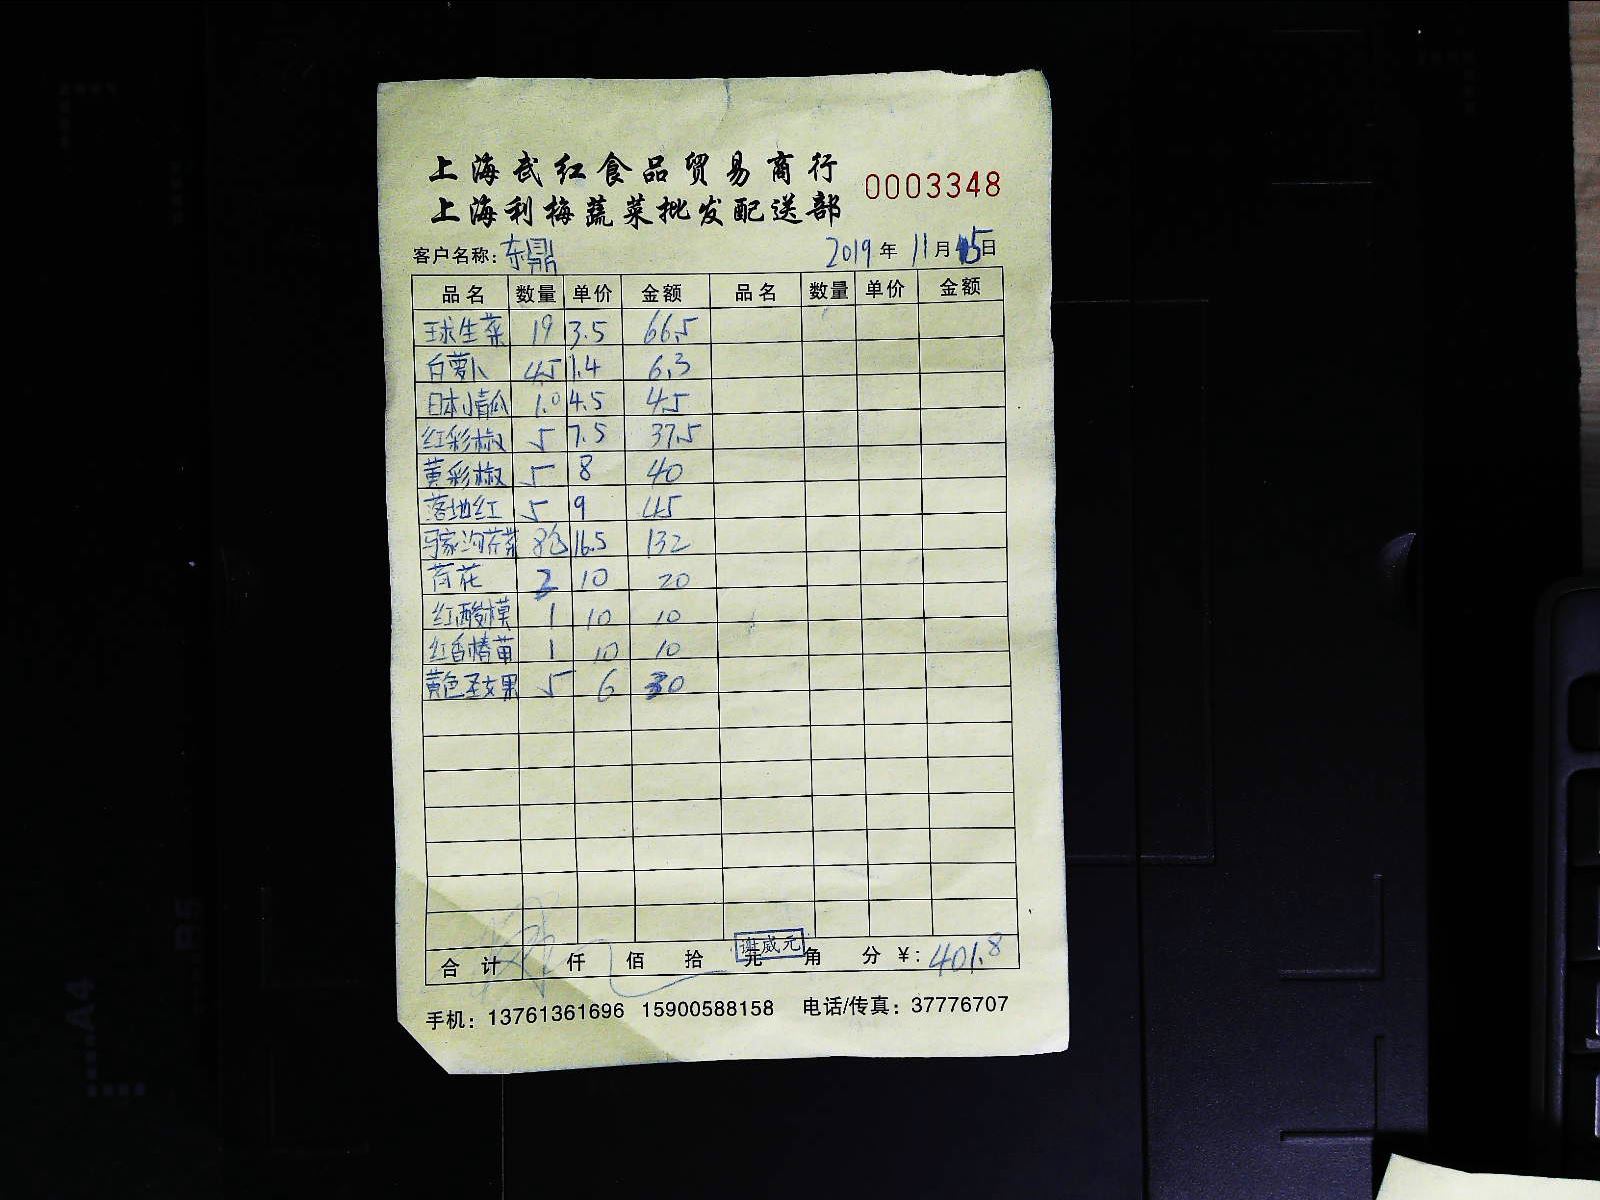 上海武红食品贸易商行
上海利梅蔬菜批发配送部
0003348
客户名称: 东鼎 2019年11月15日
品名 数量 单价 金额 品名 数量 单价 金额
球生菜 19 3.5 66.5
白萝卜 4.5 1.4 6.3
日本小青瓜 1.0 4.5 4.5
红彩椒 5 7.5 37.5
黄彩椒 5 8 40
落地红 5 9 45
马家沟芹菜 8包 16.5 132
荷花 2 10 20
红酸模 1 10 10
红香椿苗 1 10 10
黄色圣女果 5 6 30
合计 仟 佰 拾 元 角 分 ¥: 401.8
谢威元
手机: 13761361696 15900588158 电话/传真: 37776707